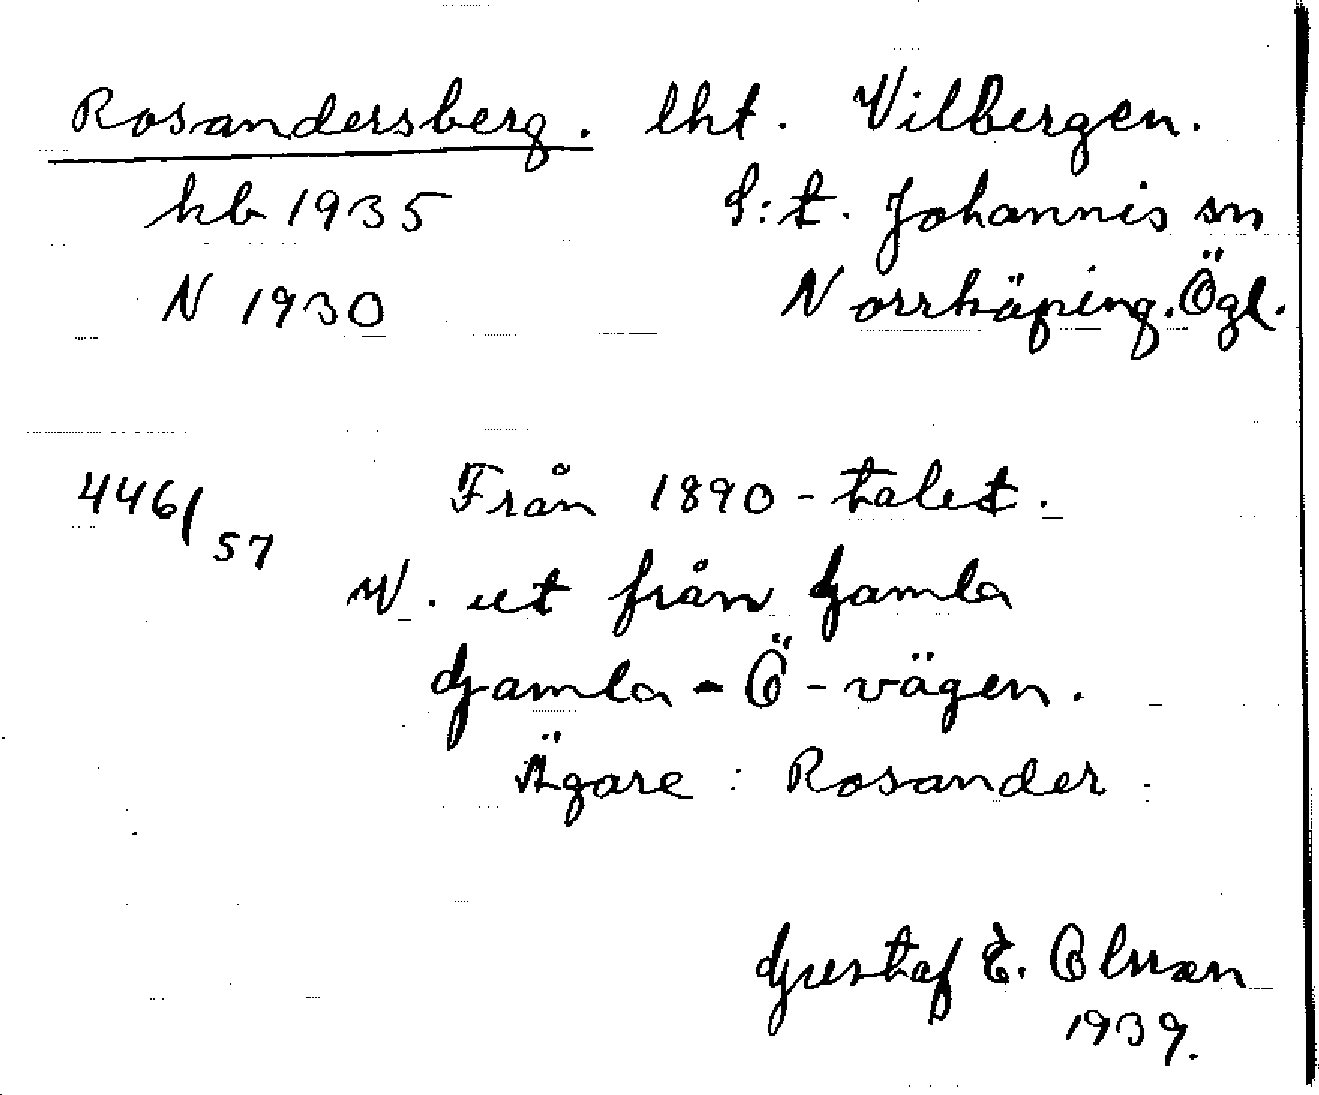 Rosandersberg. lht. Vilbergen.
hb 1935 S:t. Johannis sn
N 1930 Norrköping. Ögl.
446/57 Från 1890-talet.
W. ut från Gamla
Gamla-Ö-vägen.
Ägare: Rosander.
Gustaf E.
1939.